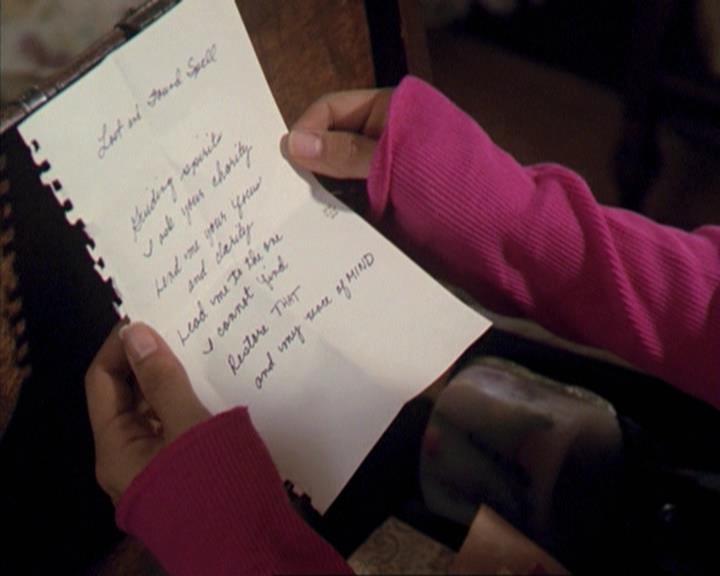 Lost and Found Spell
Guiding spirits
I ask your charity
Lend me your focus
and clarity
Lead me to the one
I cannot find
Restore THAT
and my peace of MIND